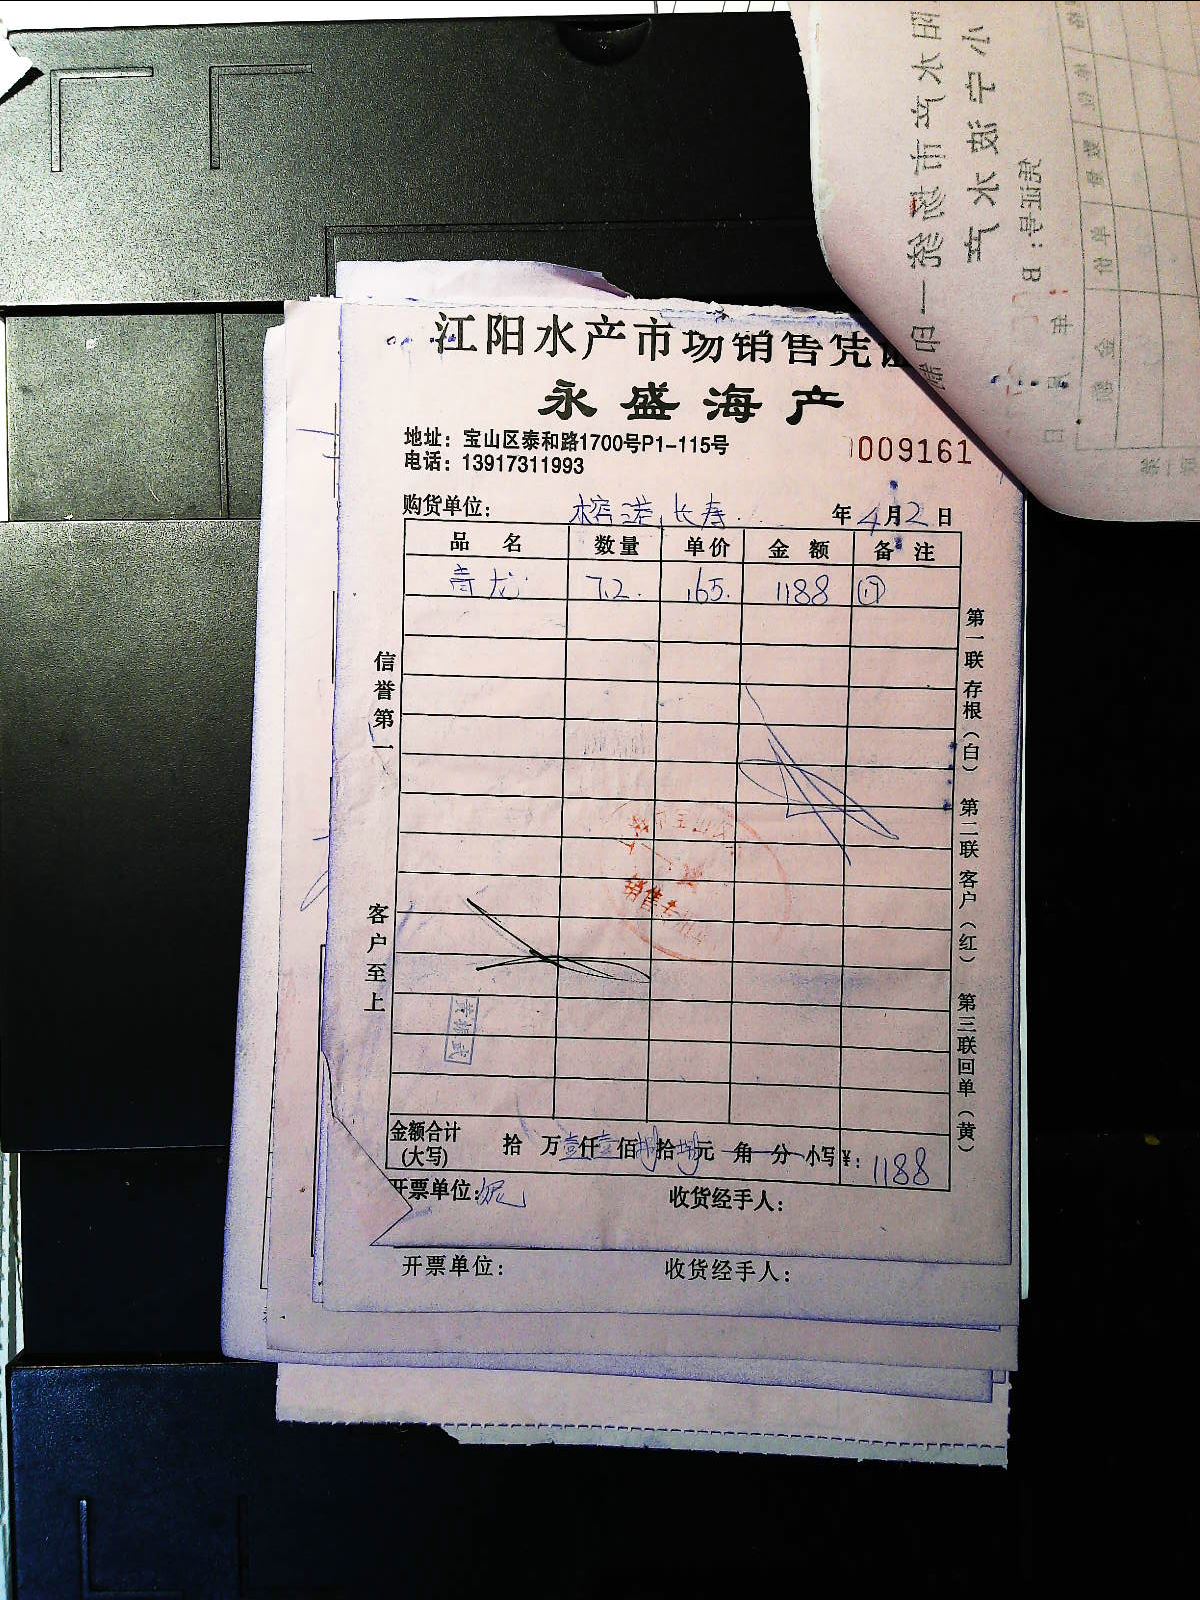 江阳水产市场销售凭证
永盛海产
地址：宝山区泰和路1700号P1-115号
电话：13917311993
009161
购货单位： 榕 长寿 年4月2日
品 名 数量 单价 金 额 备 注
青龙 7.2 165 1188 ⑰
信誉第一
客户至上
第一联 存根（白） 第二联 客户（红） 第三联 回单（黄）
金额合计
(大写)
拾 万壹仟壹佰捌拾捌元 角 分 小写¥： 1188
开票单位： 收货经手人：
开票单位： 收货经手人：